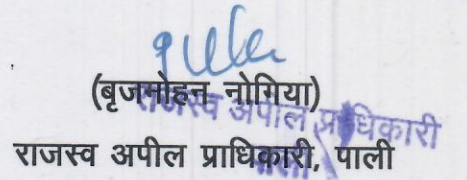 (बृजमोहन नोगिया)
राजस्व अपील प्राधिकारी
राजस्व अपील प्राधिकारी, पाली